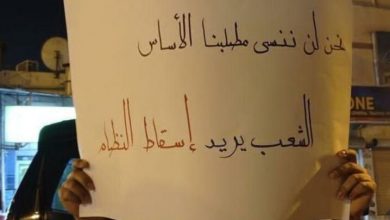 نحن لن ننسى مطلبنا الأساس
الشعب يريد إسقاط النظام
ONE